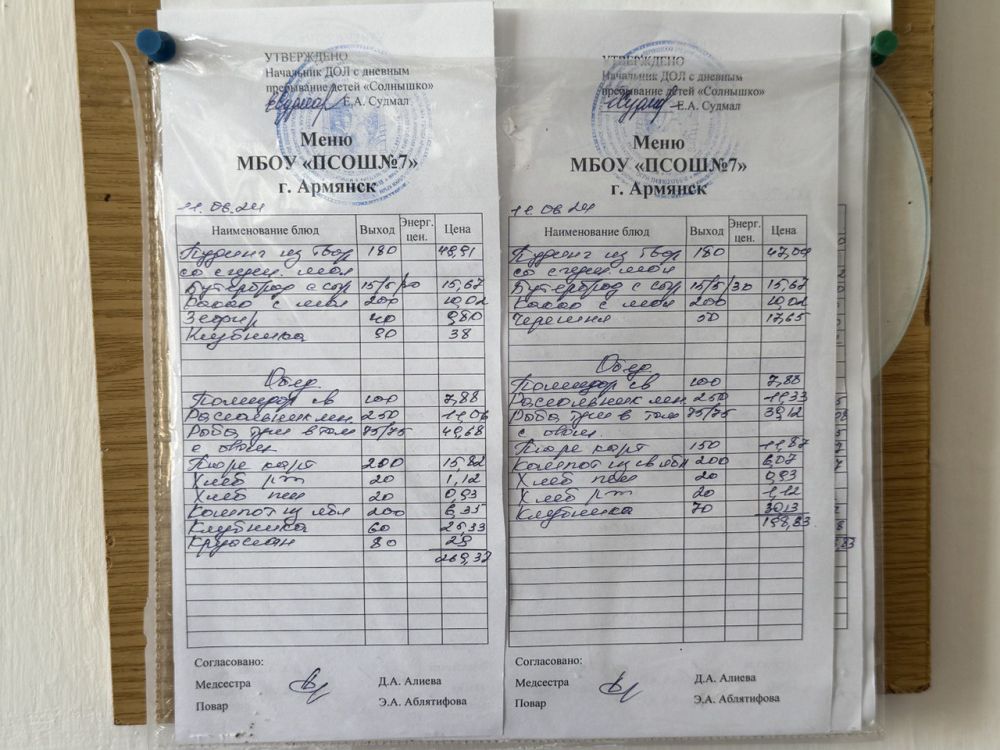 УТВЕРЖДЕНО
Начальник ДОЛ с дневным
пребывание детей «Солнышко»
Е.А. Судмал
Меню
МБОУ «ПСОШ№7»
г. Армянск
11.06.24
Наименование блюд Выход Энерг. цен. Цена
Пудинг из твор 180
со сгущ. мол
Бутерброд с сыр 15/5/30 15,67
Какао с мол 200 10,02
Зефир 40 9,80
Клубника 90 38
Обед
Помидор св 100 7,88
Рассольник лен 250 11,06
Рыба туш в том 75/75 49,68
с овощ
Пюре карт 200 15,82
Хлеб рж 20 1,12
Хлеб пш 20 0,93
Компот из ябл 200 6,35
Клубника 60 25,33
Круассан 80 29
269,33
Согласовано:
Медсестра Д.А. Алиева
Повар Э.А. Аблятифова
УТВЕРЖДЕНО
Начальник ДОЛ с дневным
пребывание детей «Солнышко»
Е.А. Судмал
Меню
МБОУ «ПСОШ№7»
г. Армянск
11.06.24
Наименование блюд Выход Энерг. цен. Цена
Пудинг из твор 180 47,09
со сгущ. мол
Бутерброд с сыр 15/5/30 15,67
Какао с мол 200 10,02
Черешня 50 17,65
Обед
Помидор св 100 7,88
Рассольник лен 250 11,33
Рыба туш в том 75/75 39,12
с овощ
Пюре карт 150 11,87
Компот из св ябл 200 6,07
Хлеб пш 20 0,93
Хлеб рж 20 1,12
Клубника 70 30,13
198,83
Согласовано:
Медсестра Д.А. Алиева
Повар Э.А. Аблятифова